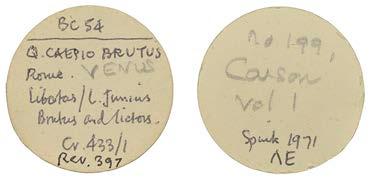 BC 54
Q. CAEPIO BRUTUS
Rome. VENUS
Libertas/L. Junius
Brutus and lictors.
Cr. 433/1
Rev. 397
No 199,
Carson
vol 1
Spink 1971
ΛE